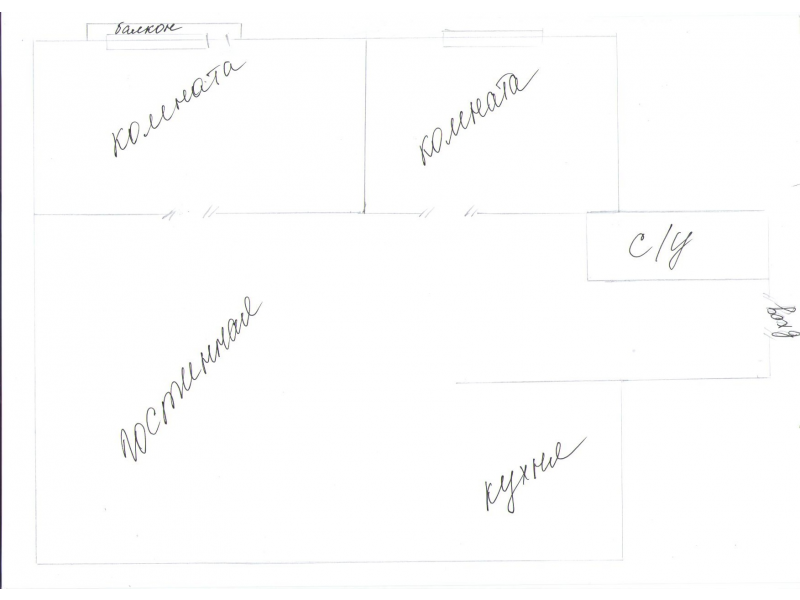 балкон
комната
комната
с/у
вход
гостинная
кухня